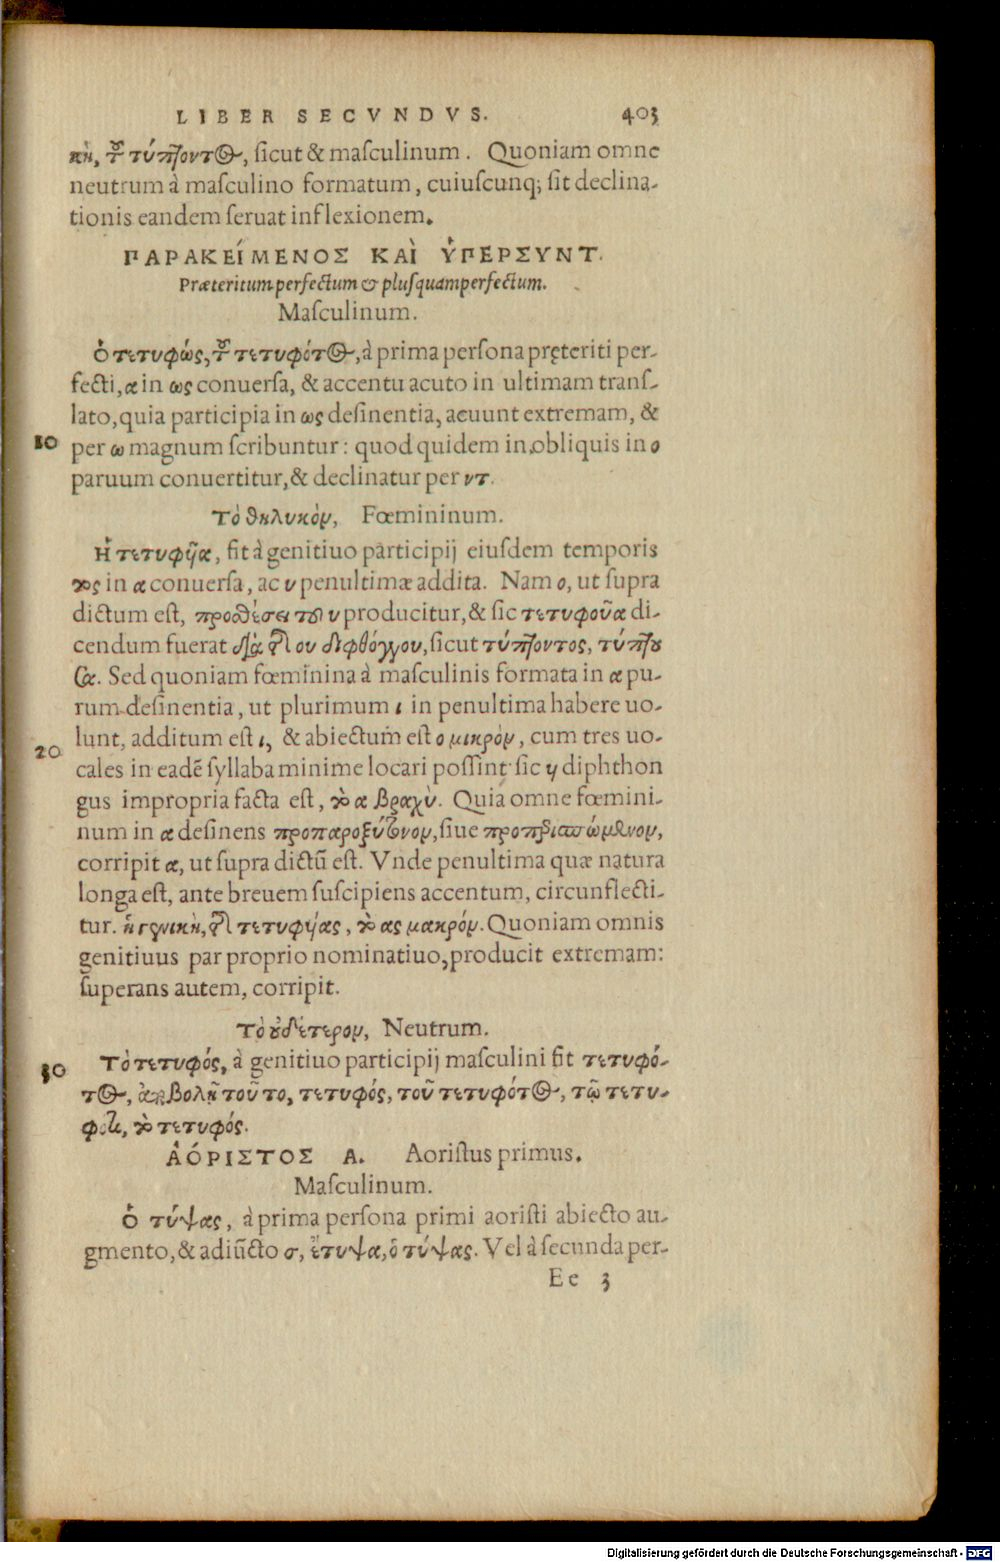 LIBER SECVNDVS. 403
κὴ, τοῦ τύπτοντος, ſicut & maſculinum. Quoniam omne
neutrum à maſculino formatum, cuiuſcunq; ſit declina-
tionis eandem ſeruat inflexionem.
ΠΑΡΑΚΕΊΜΕΝΟΣ ΚΑῚ ὙΠΕΡΣΥΝΤ.
Præteritum perfectum & pluſquamperfectum.
Maſculinum.
Ὁ τετυφώς, τοῦ τετυφότος, à prima perſona pręteriti per-
fecti, α in ως conuerſa, & accentu acuto in ultimam tranſ-
lato, quia participia in ως deſinentia, acuunt extremam, &
10 per ω magnum ſcribuntur: quod quidem in obliquis in ο
paruum conuertitur, & declinatur per ντ.
Τὸ θηλυκὸν, Fœmininum.
Ἡ τετυφῦα, fit à genitiuo participij eiuſdem temporis
τος in α conuerſa, ac υ penultimæ addita. Nam ο, ut ſupra
dictum eſt, προσθέσει τοῦ υ producitur, & ſic τετυφοῦα di-
cendum fuerat διὰ τῆς ου διφθόγγου, ſicut τύπτοντος, τύπτου
σα. Sed quoniam fœminina à maſculinis formata in α pu-
rum deſinentia, ut plurimum ι in penultima habere uo-
lunt, additum eſt ι, & abiectum eſt ο μικρὸν, cum tres uo-
20 cales in eadē ſyllaba minime locari poſſint: ſic υι diphthon
gus impropria facta eſt, καὶ α βραχὺ. Quia omne fœmini-
num in α deſinens προπαροξύτονον, ſiue προπερισπώμενον,
corripit α, ut ſupra dictū eſt. Vnde penultima quæ natura
longa eſt, ante breuem ſuſcipiens accentum, circunflecti-
tur. ἡ γενικὴ, τῆς τετυφύας, καὶ ας μακρόν. Quoniam omnis
genitiuus par proprio nominatiuo, producit extremam:
ſuperans autem, corripit.
Τὸ οὐδέτερον, Neutrum.
30 Τὸ τετυφός, à genitiuo participij maſculini fit τετυφό-
τος, ἀποβολῇ τοῦ το, τετυφός, τοῦ τετυφότος, τῷ τετυ-
φότι, καὶ τετυφός.
ἈΌΡΙΣΤΟΣ Α. Aoriſtus primus.
Maſculinum.
Ὁ τύψας, à prima perſona primi aoriſti abiecto au-
gmento, & adiūcto σ, ἔτυψα, ὁ τύψας. Vel à ſecunda per-
Ee 3
Digitalisierung gefördert durch die Deutsche Forschungsgemeinschaft - DFG